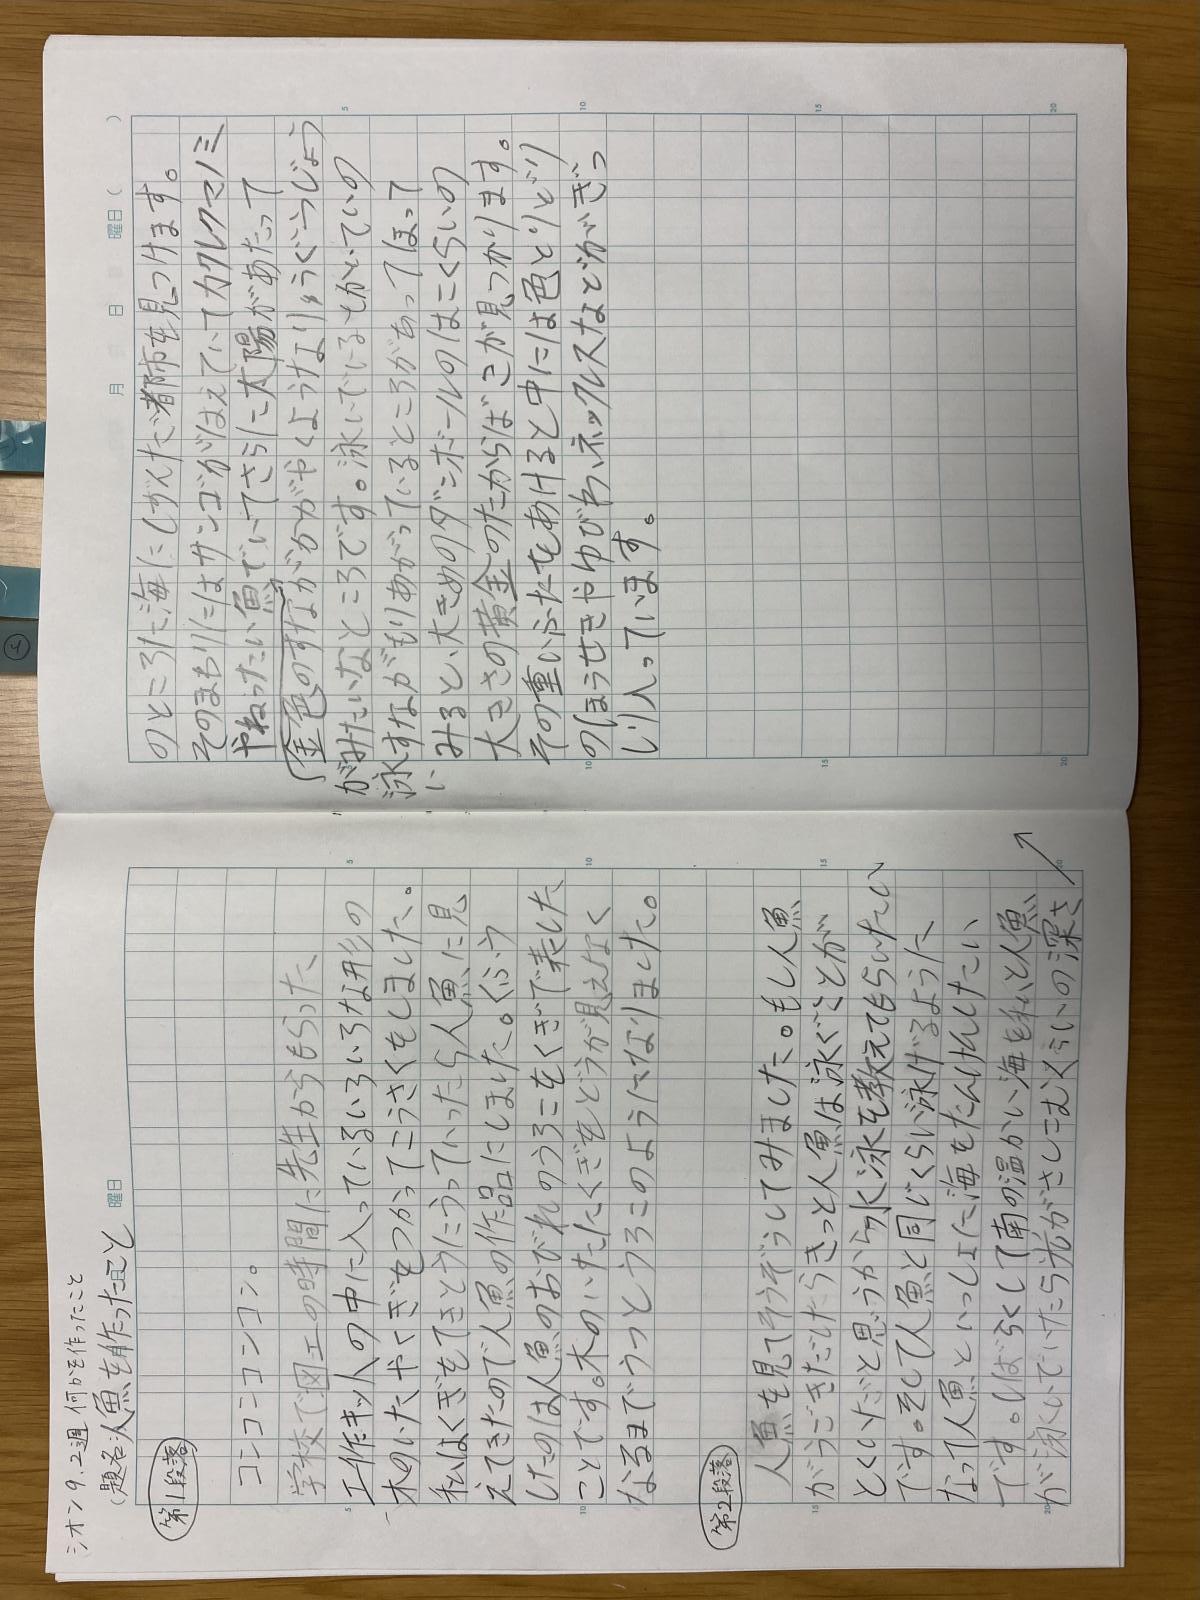 シオン9.2週 何かを作ったこと
(題名)人魚を作ったこと
曜日
第1段落
コンコンコンコン。
学校で図工の時間に先生からもらった
工作キットの中に入っているいろいろな形の
木のいたやくぎをつかってこうさくをしました。
私はくぎをてきとうにうっていったら人魚に見
えてきたので人魚の作品にしました。くふう
したのは人魚のおびれのうろこをくぎで表した
ことです。木のいたにくぎをどうが見えなく
なるまでうつとうろこのようになりました。
第2段落
人魚を見てそうぞうしてみました。もし人魚
がうごきだしたらきっと人魚は泳ぐことが
とくいだと思うから水泳を教えてもらいたい
です。そして人魚と同じくらい泳げるように
なって人魚といっしょに海をたんけんしたい
です。しばらくして南の温かい海を私と人魚
が泳いでいたら光がさしこむくらいの深さ
月 日 曜日( )
のところに海にしずんだ都市を見つけます。
そのまわりにはサンゴがはえていてカクレクマノミ
やねったい魚がいてさらに太陽があたって
金色のすながかがやくようなりゅうぐうじょう
がみたいなところです。泳いでいるとかいていの
泳すながもりあがっているところがあってほって
みると、大きめのダンボールのはこくらいの
大きさの黄金のたからばこが見つかります。
その重いふたをあけると中には色とりどり
のほうせきやゆびわ、ネックレスなどがぎっ
しり入っています。